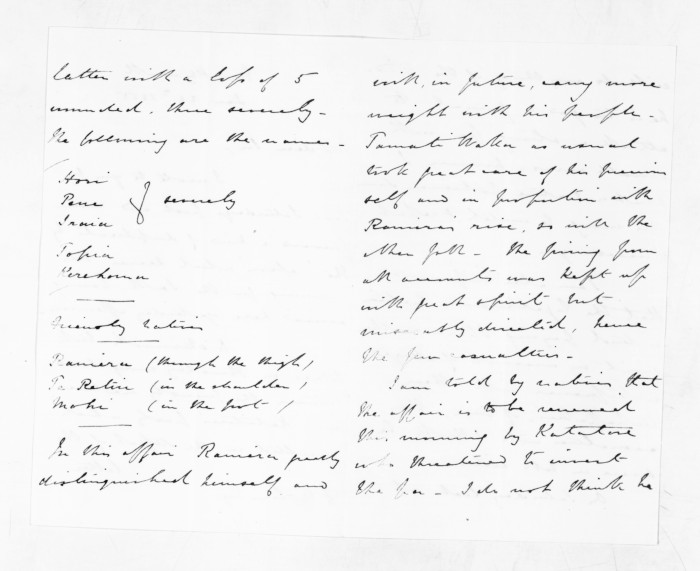 latter with a loss of 5
wounded, three severely -
The following are the names -
Hori
Pene } severely
Iraia
Topia
Kerehoma
Friendly Natives
Raniera (through the thigh)
Te Retiu (in the shoulder)
Mohi (in the foot)
In this affair Raniera greatly
distinguished himself and
will, in future, carry more
weight with his people -
Tamati Waka as usual
took great care of his precious
self and in proportion with
Raniera's rise, so will the
other fall - The firing from
all accounts was kept up
with great spirit but
miserably directed, hence
the few casualties -
I am told by natives that
the affair is to be renewed
this morning by Katatore
who threatened to invest
the pa - I do not think he